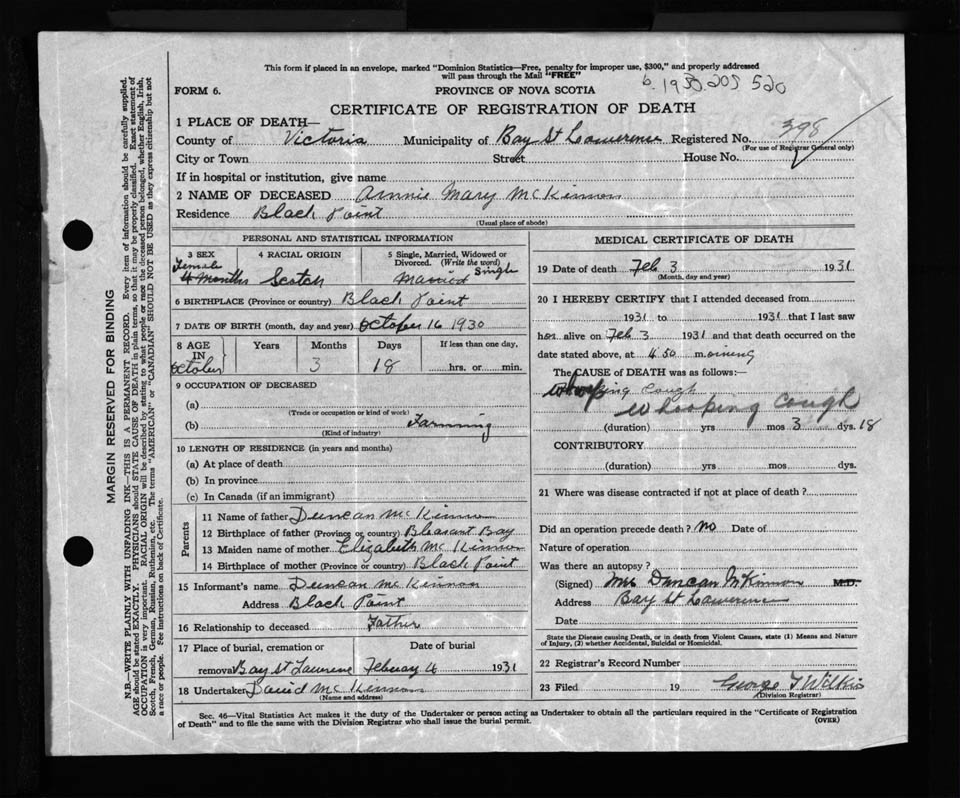 This form if placed in an envelope, marked "Dominion Statistics—Free, penalty for improper use, $300," and properly addressed
will pass through the Mail "FREE"
6. 1930.205 520
FORM 6.
PROVINCE OF NOVA SCOTIA
CERTIFICATE OF REGISTRATION OF DEATH
1 PLACE OF DEATH—
398
County of Victoria Municipality of Bay St Lawerence Registered No.
(For use of Registrar General only)
City or Town Street House No.
If in hospital or institution, give name
2 NAME OF DECEASED Annie Mary McKinnon
Residence Black Point
(Usual place of abode)
PERSONAL AND STATISTICAL INFORMATION
3 SEX 4 RACIAL ORIGIN 5 Single, Married, Widowed or Divorced. (Write the word)
Female Single
4 Months Scotch Married
6 BIRTHPLACE (Province or country) Black Point
7 DATE OF BIRTH (month, day and year) October 16 1930
8 AGE IN Years Months Days If less than one day,
October 3 18 hrs. or min.
9 OCCUPATION OF DECEASED
(a)
(Trade or occupation or kind of work)
(b) Farming
(Kind of industry)
10 LENGTH OF RESIDENCE (in years and months)
(a) At place of death
(b) In province
(c) In Canada (if an immigrant)
Parents
11 Name of father Duncan McKinnon
12 Birthplace of father (Province or country) Pleasant Bay
13 Maiden name of mother Elizabeth McKinnon
14 Birthplace of mother (Province or country) Black Point
15 Informant's name Duncan McKinnon
Address Black Point
16 Relationship to deceased Father
17 Place of burial, cremation or Date of burial
removal Bay St Lawrence February 4 1931
18 Undertaker David McKinnon
(Name and address)
MEDICAL CERTIFICATE OF DEATH
19 Date of death Feb 3 1931
(Month, day and year)
20 I HEREBY CERTIFY that I attended deceased from
1931 to 1931 that I last saw
her alive on Feb 3 1931 and that death occurred on the
date stated above, at 4 50 m. oining
The CAUSE OF DEATH was as follows:—
whooping Cough
Whooping cough
(duration) yrs mos 3 dys. 18
CONTRIBUTORY
(duration) yrs mos dys.
21 Where was disease contracted if not at place of death?
Did an operation precede death? no Date of
Nature of operation
Was there an autopsy?
(Signed) Mrs Duncan McKinnon M.D.
Address Bay St Lawerence
Date
State the Disease causing Death, or in death from Violent Causes, state (1) Means and Nature
of Injury, (2) whether Accidental, Suicidal or Homicidal.
22 Registrar's Record Number
23 Filed 19 George T Wilkie
(Division Registrar)
Sec. 46—Vital Statistics Act makes it the duty of the Undertaker or person acting as Undertaker to obtain all the particulars required in the "Certificate of Registration
of Death" and to file the same with the Division Registrar who shall issue the burial permit.
(OVER)
MARGIN RESERVED FOR BINDING
N.B.—WRITE PLAINLY WITH UNFADING INK—THIS IS A PERMANENT RECORD. Every item of information should be carefully supplied.
AGE should be stated EXACTLY. PHYSICIANS should STATE CAUSE OF DEATH in plain terms, so that it may be properly classified. Exact statement of
OCCUPATION is very important. RACIAL ORIGIN will be described by stating to what people or race the deceased person belonged, whether English, Irish,
Scotch, French, German, Russian, Ruthenian, etc. The terms "AMERICAN" or "CANADIAN" SHOULD NOT BE USED as they express citizenship but not
a race or people. See instructions on back of Certificate.